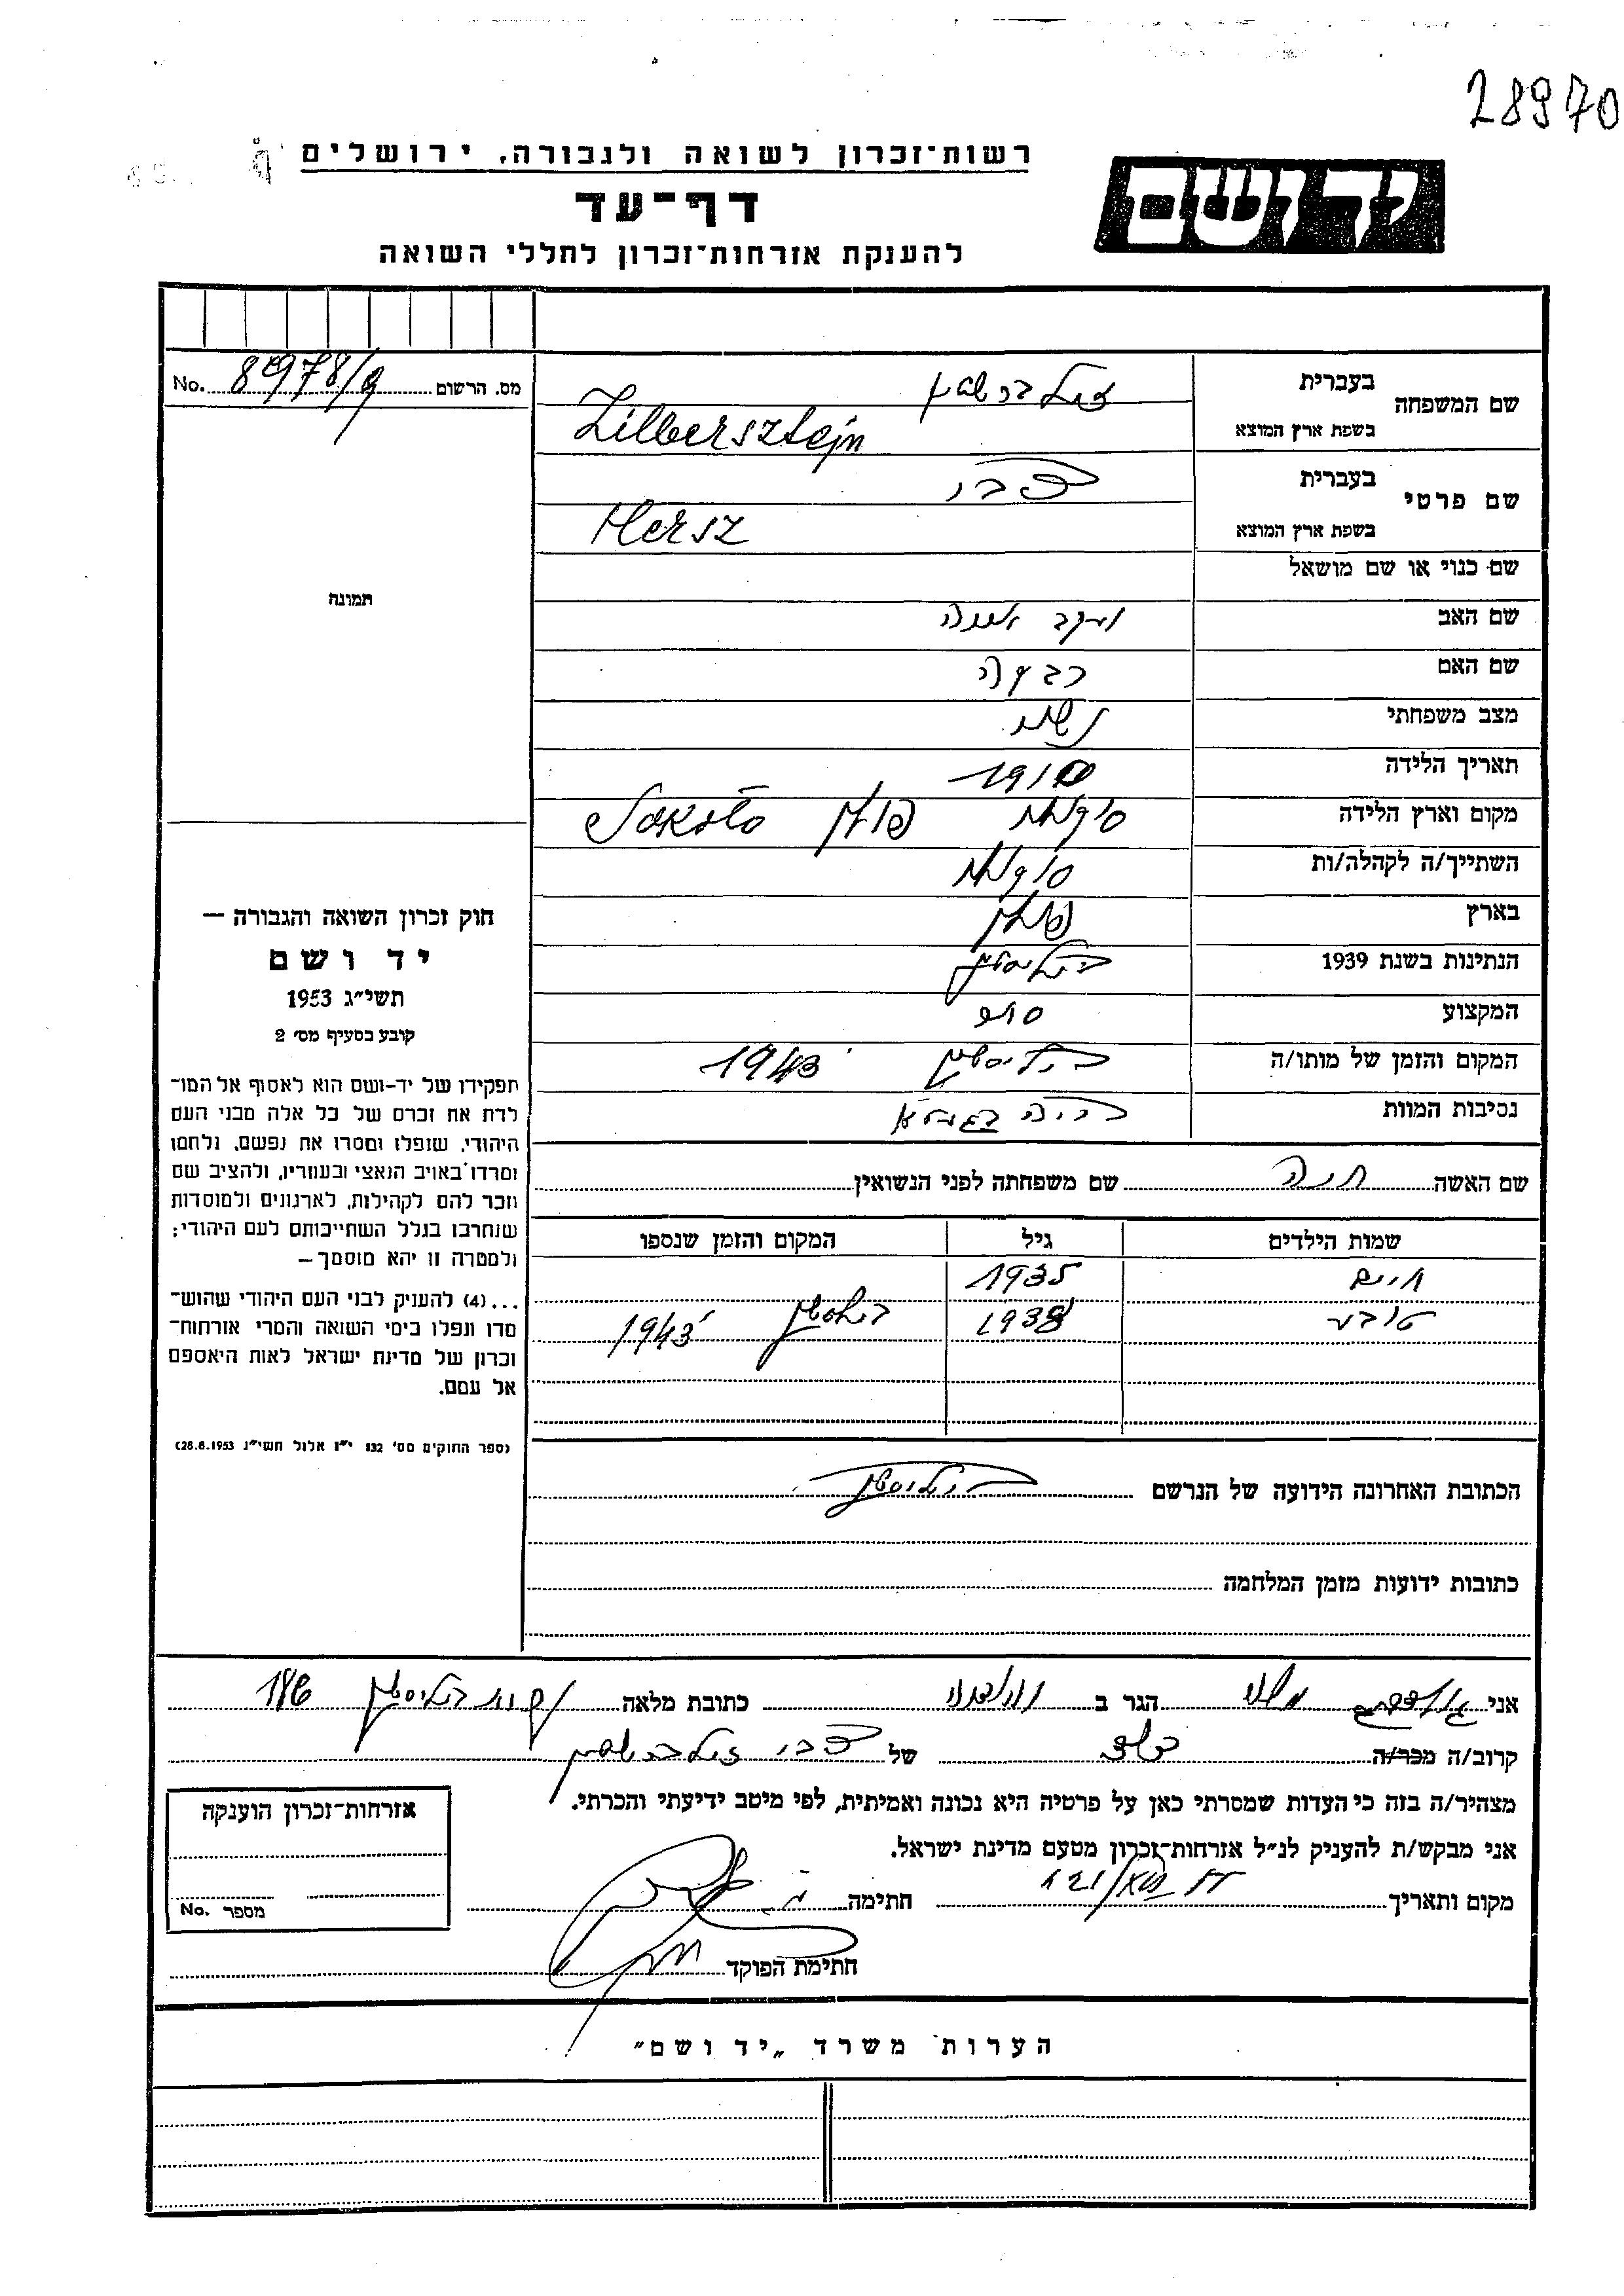 28970
רשות־זכרון לשואה ולגבורה, ירושלים
יד ושם
דף־עד
להענקת אזרחות־זכרון לחללי השואה
מס. הרשום 8978/9 No.
שם המשפחה בעברית זילברשטין
בשפת ארץ המוצא Zilbersztejn
שם פרטי בעברית צבי
בשפת ארץ המוצא Hersz
שם כנוי או שם מושאל
שם האב יעקב
שם האם רבקה
מצב משפחתי נשוי
תאריך הלידה 1910
מקום וארץ הלידה פולין Sokoły
השתייך/ה לקהלה/ות
בארץ פולין
הנתינות בשנת 1939
המקצוע סוחר
המקום והזמן של מותו/ה ביאליסטוק 1943
נסיבות המוות היה בגיטו
תמונה
חוק זכרון השואה והגבורה —
יד ושם
תשי״ג 1953
קובע בסעיף מס׳ 2
תפקידן של יד-ושם הוא לאסוף אל המו־
לדת את זכרם של כל אלה מבני העם
היהודי, שנפלו ומסרו את נפשם, נלחמו
ומרדו באויב הנאצי ובעוזריו, ולהציב שם
וזכר להם לקהילות, לארגונים ולמוסדות
שנחרבו בגלל השתייכותם לעם היהודי;
ולמטרה זו יהא מוסמך—
...(4) להעניק לבני העם היהודי שהוש־
מדו ונפלו בימי השואה והמרי אזרחות־
זכרון של מדינת ישראל לאות היאספם
אל עמם.
(ספר החוקים מס׳ 132 י״ז אלול תשי״ג 28.8.1953)
שם האשה חיה שם משפחתה לפני הנשואין
שמות הילדים גיל המקום והזמן שנספו
חיים 1935
טובה 1938 ביאליסטוק 1943
הכתובת האחרונה הידועה של הנרשם ביאליסטוק
כתובות ידועות מזמן המלחמה
אני הגר ב כתובת מלאה קרית ביאליסטוק
קרוב/ה מכר/ה של צבי זילברשטין
מצהיר/ה בזה כי העדות שמסרתי כאן על פרטיה היא נכונה ואמיתית, לפי מיטב ידיעתי והכרתי.
אני מבקש/ת להעניק לנ״ל אזרחות־זכרון מטעם מדינת ישראל.
מקום ותאריך חתימה
חתימת הפוקד
אזרחות־זכרון הוענקה
מספר No.
הערות משרד „יד ושם״